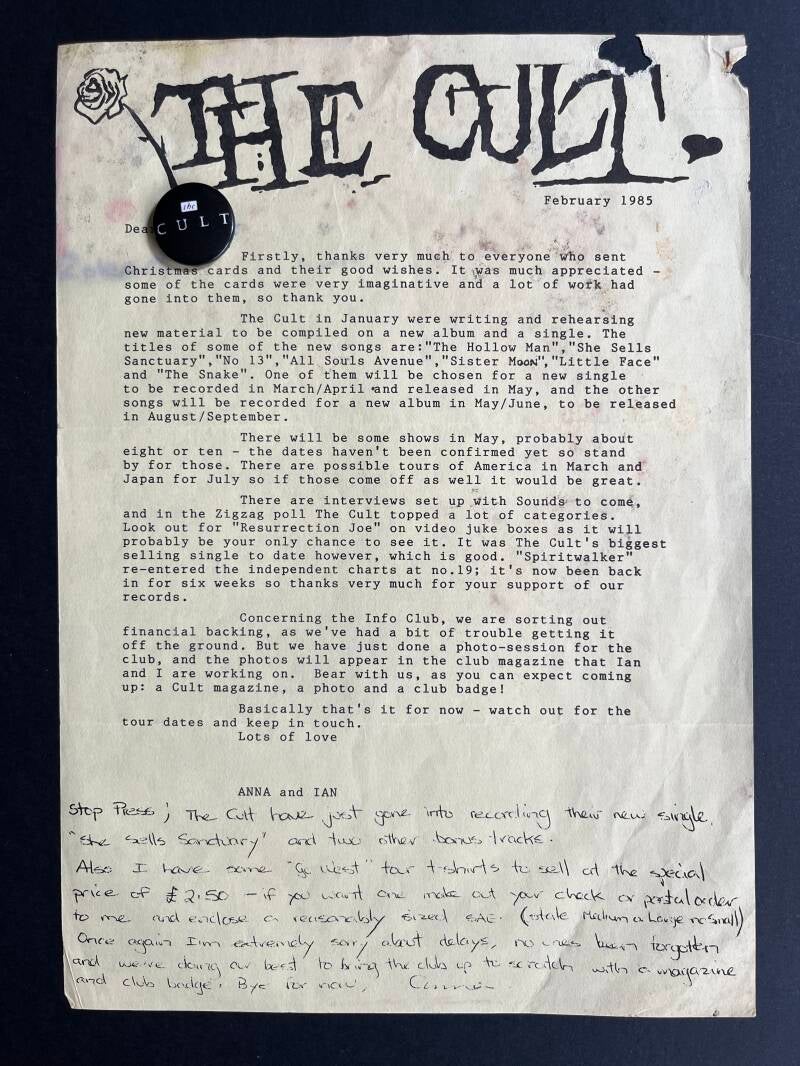 THE CULT.
the
CULT
February 1985
Dea
Firstly, thanks very much to everyone who sent
Christmas cards and their good wishes. It was much appreciated -
some of the cards were very imaginative and a lot of work had
gone into them, so thank you.
The Cult in January were writing and rehearsing
new material to be compiled on a new album and a single. The
titles of some of the new songs are:"The Hollow Man","She Sells
Sanctuary","No 13","All Souls Avenue","Sister Moon","Little Face"
and "The Snake". One of them will be chosen for a new single
to be recorded in March/April and released in May, and the other
songs will be recorded for a new album in May/June, to be released
in August/September.
There will be some shows in May, probably about
eight or ten - the dates haven't been confirmed yet so stand
by for those. There are possible tours of America in March and
Japan for July so if those come off as well it would be great.
There are interviews set up with Sounds to come,
and in the Zigzag poll The Cult topped a lot of categories.
Look out for "Resurrection Joe" on video juke boxes as it will
probably be your only chance to see it. It was The Cult's biggest
selling single to date however, which is good. "Spiritwalker"
re-entered the independent charts at no.19; it's now been back
in for six weeks so thanks very much for your support of our
records.
Concerning the Info Club, we are sorting out
financial backing, as we've had a bit of trouble getting it
off the ground. But we have just done a photo-session for the
club, and the photos will appear in the club magazine that Ian
and I are working on. Bear with us, as you can expect coming
up: a Cult magazine, a photo and a club badge!
Basically that's it for now - watch out for the
tour dates and keep in touch.
Lots of love
ANNA and IAN
Stop Press; The Cult have just gone into recording their new single,
"she sells Sanctuary" and two other bonus tracks.
Also I have some "Go West" tour t-shirts to sell at the special
price of £2.50 - if you want one make out your check or postal order
to me and enclose a reasonably sized SAE. (state Medium or Large no Small)
Once again I'm extremely sorry about delays, no ones been forgotten
and we're doing our best to bring the club up to scratch with a magazine
and club badge. Bye for now,